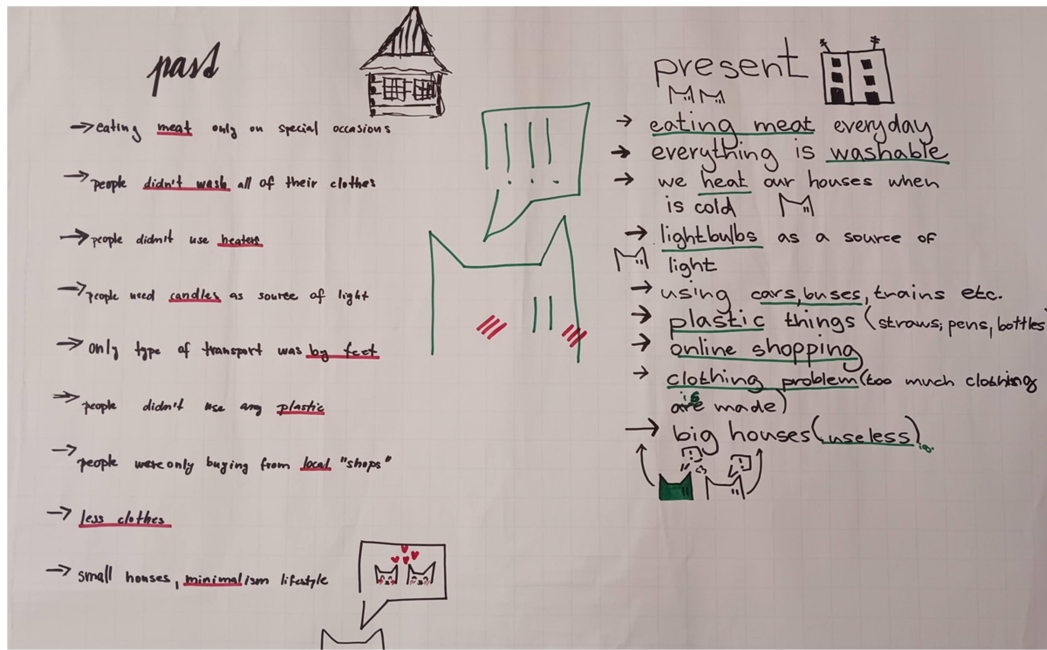 past
→ eating meat only on special occasions
→ people didn't wash all of their clothes
→ people didn't use heaters
→ people used candles as source of light
→ only type of transport was by feet
→ people didn't use any plastic
→ people were only buying from local "shops"
→ less clothes
→ small houses, minimalism lifestyle
present
→ eating meat everyday
→ everything is washable
→ we heat our houses when
is cold
→ lightbulbs as a source of
light
→ using cars, buses, trains etc.
→ plastic things (straws, pens, bottles)
→ online shopping
→ clothing problem (too much clothing
is made)
→ big houses (useless)